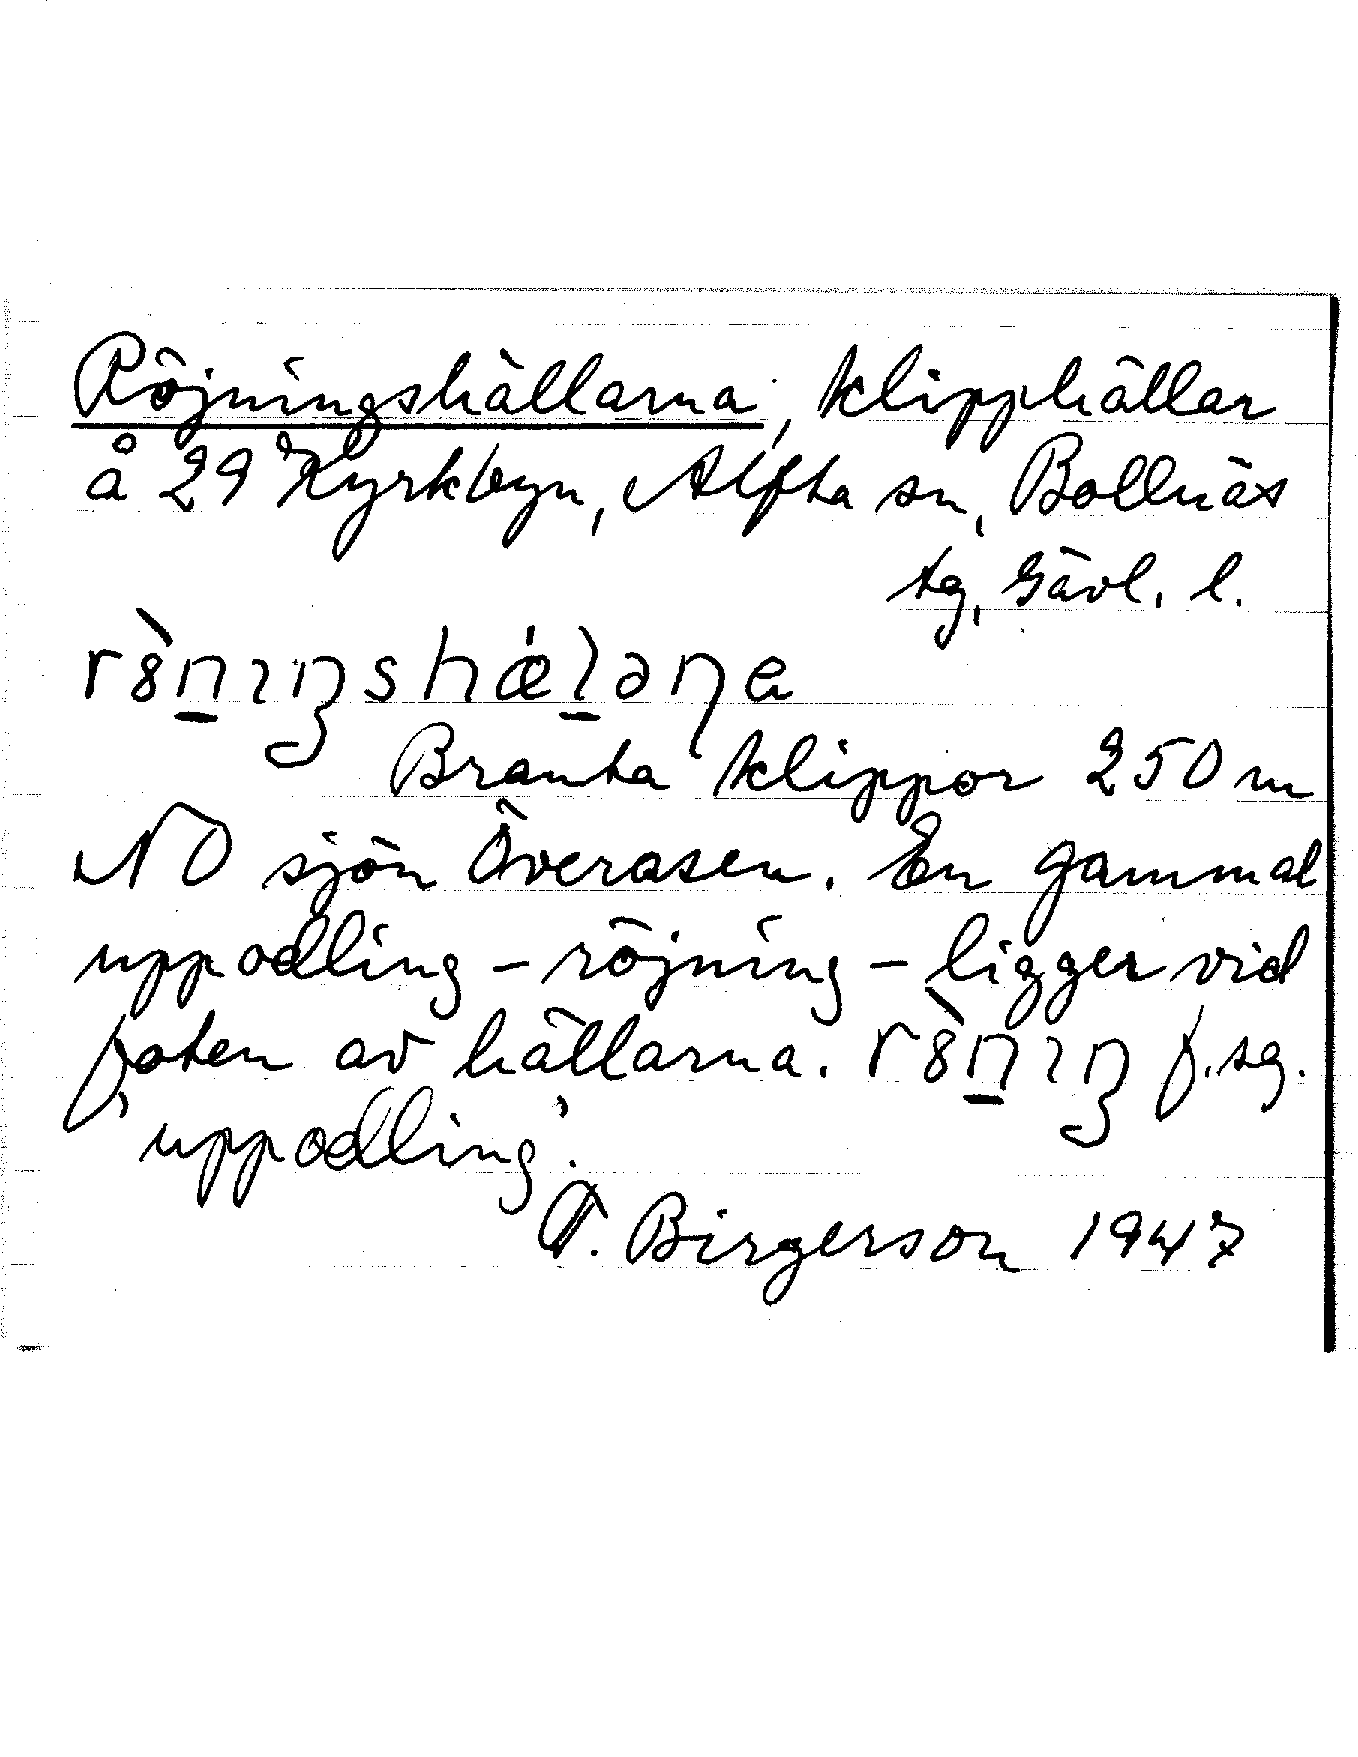 Röjningshällarna, klipphällar
å 29 Kyrkbyn, Alfta sn, Bollnäs
tg, Gävl. l.
r8̀n̲ıŋshǽl̲əɳa
Branta klippor 250 m
NO sjön Överasen. En gammal
uppodling – röjning – ligger vid
foten av hällarna. r8̀n̲ıŋ f. sg.
'uppodling'.
T. Birgerson 1947